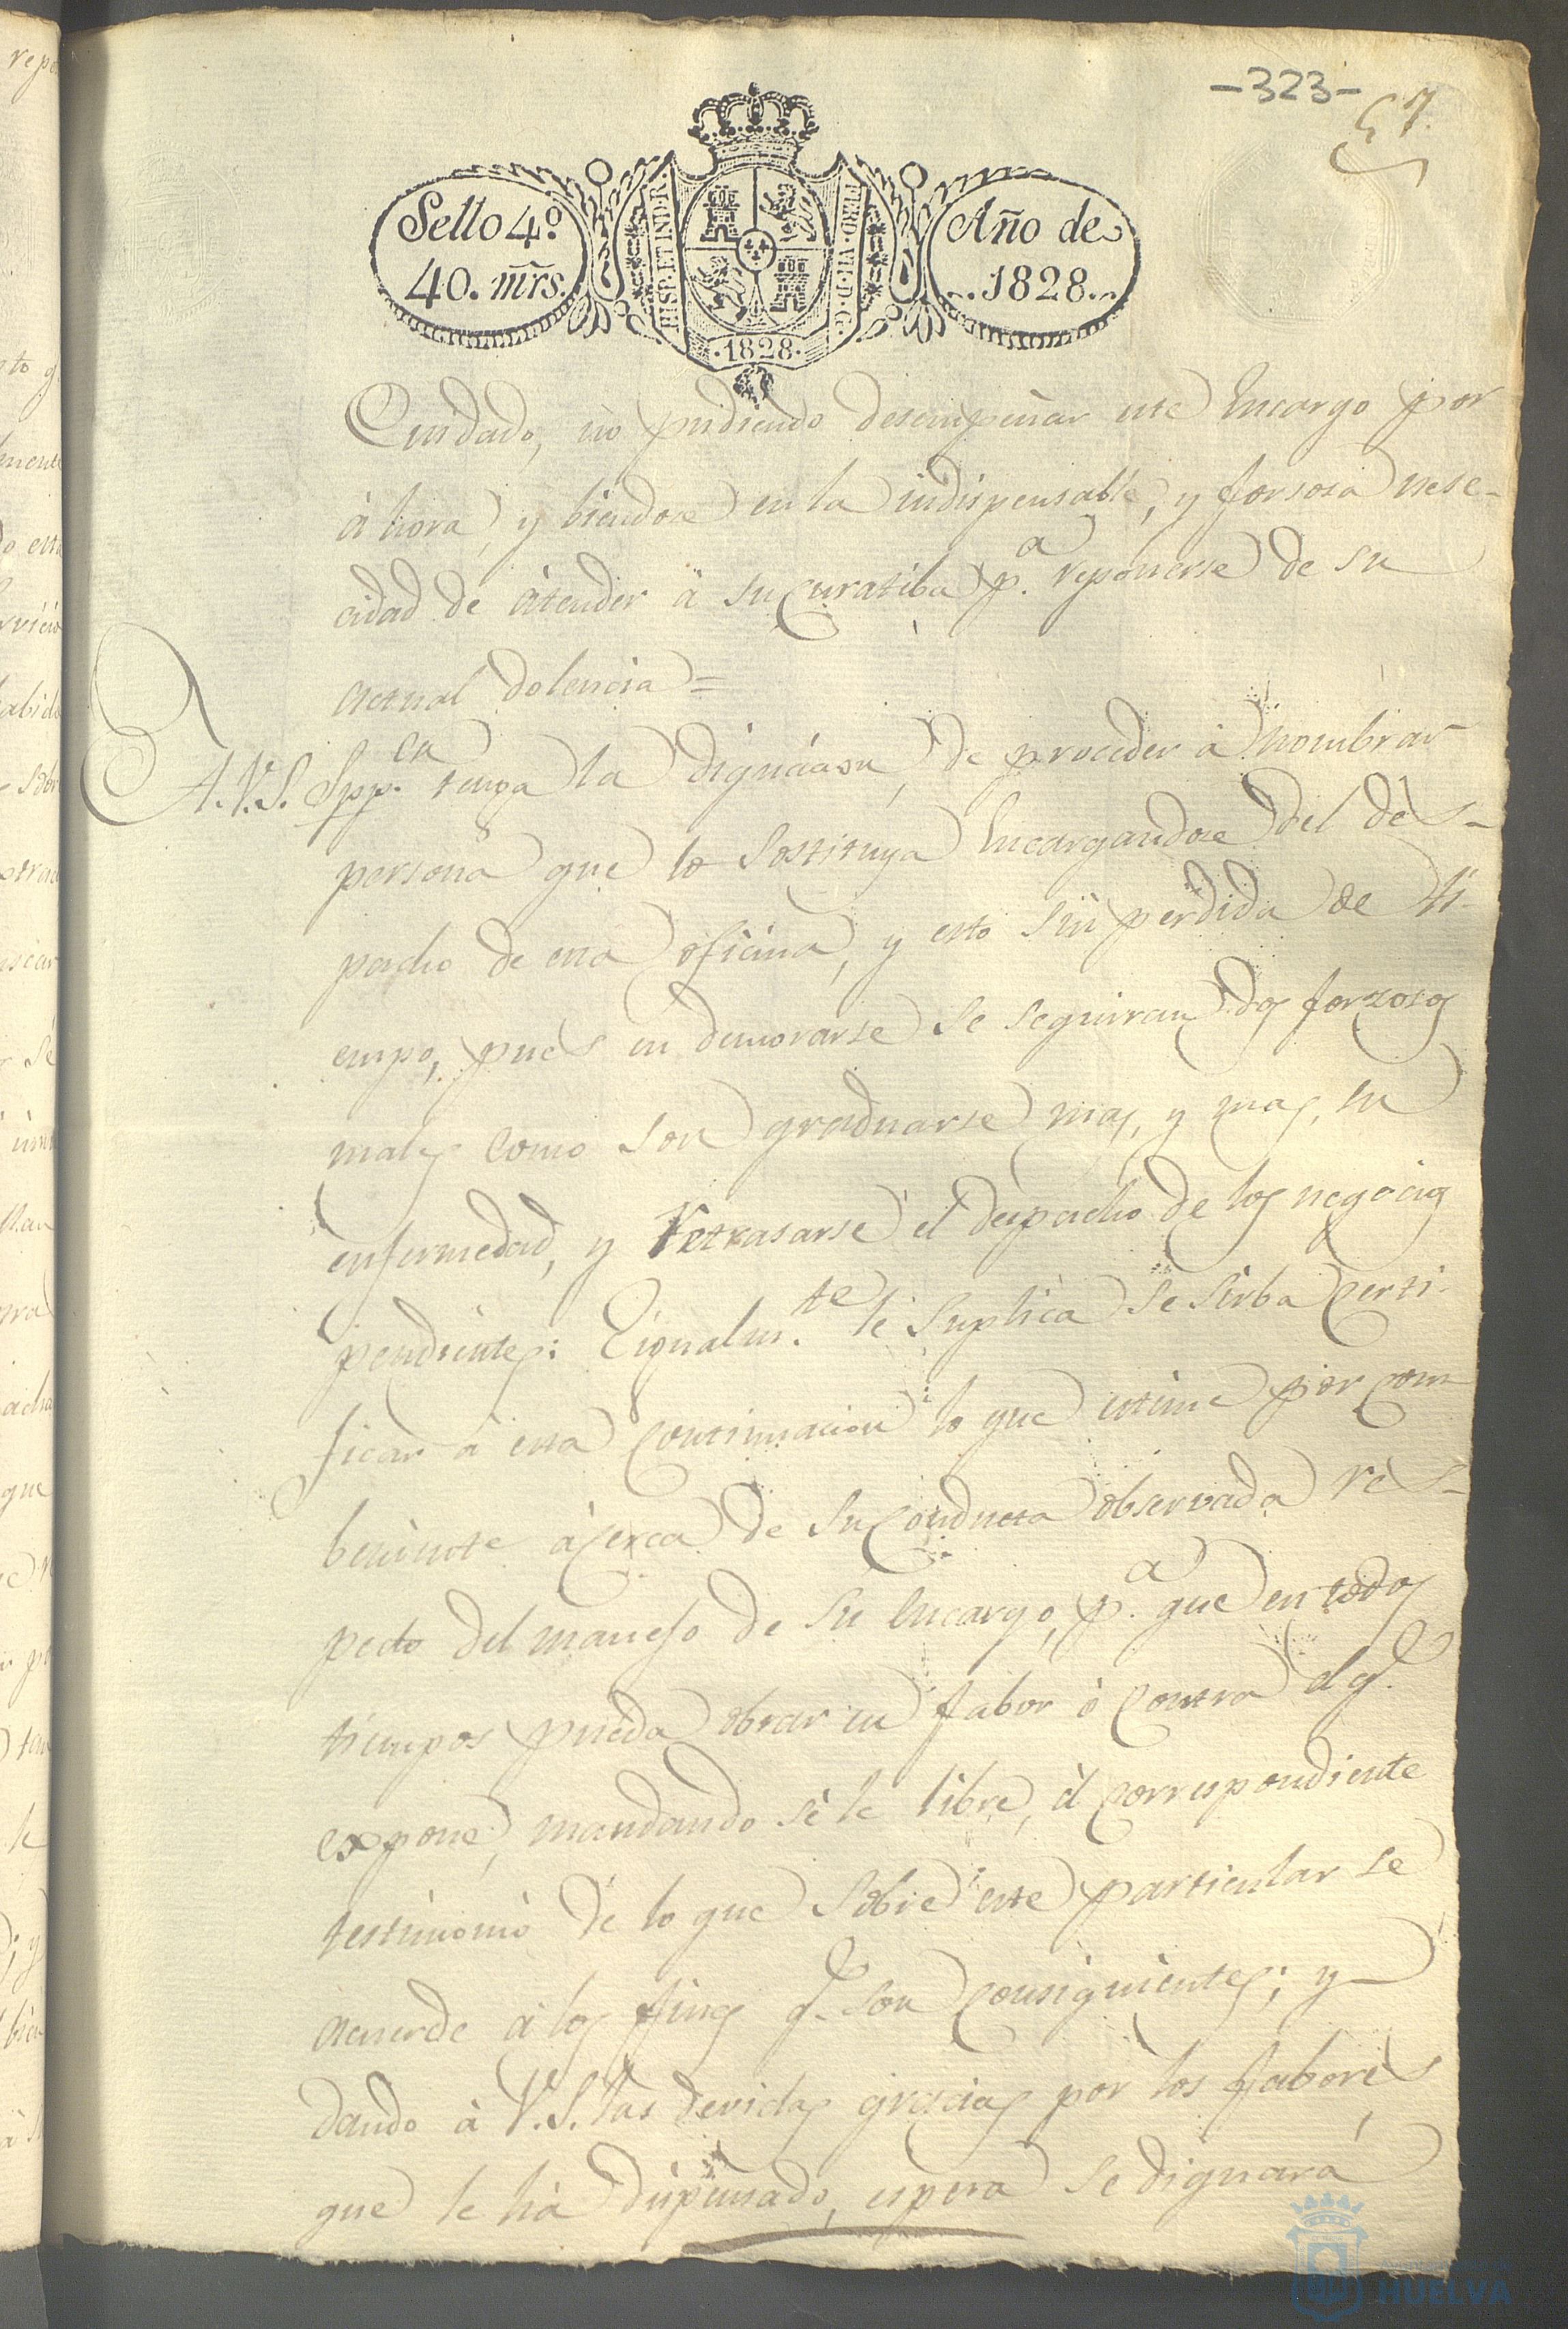 -323-
57
Sello 4º
40. mrs.
HISP. ET IND. R.
FERD. VII. D. G.
·1828·
Año de
1828.
Cuidado, no pudiendo desempeñar este Encargo por
á hora, y biendose en la indispensable, y forsosa nese-
cidad de átender á su curatiba p.ª reponerse de su
actual dolencia=
A.V.S. Spp.ca tenga la dignáaon, de proceder á nombrar
persona que lo Sostituya Encargandose del des-
pacho de esta oficina, y esto sin perdida de ti-
empo, pues en demorarse se seguirran dos forzosos
males como son graduarse mas, y mas, su
enfermedad, y Retrasarse el despacho de los negocios
pendientes: Eigualm.te le suplica se sirba Certi-
ficar á esta continuacion lo que estime por com-
beniente ácerca de su conducta observada res-
pecto del manejo de su Encargo, p.ª que en todos
tiempos pueda obrar en fabor ó contra el q.e
expone, mandando se le libre, él correspondiente
testimonio de lo que sobre este particular se
acuerde á los fines q.e son consiguientes; y
dando á V.S. las devidas gracias por los fabores
que le há dispensado, espera se dignará
HUELVA